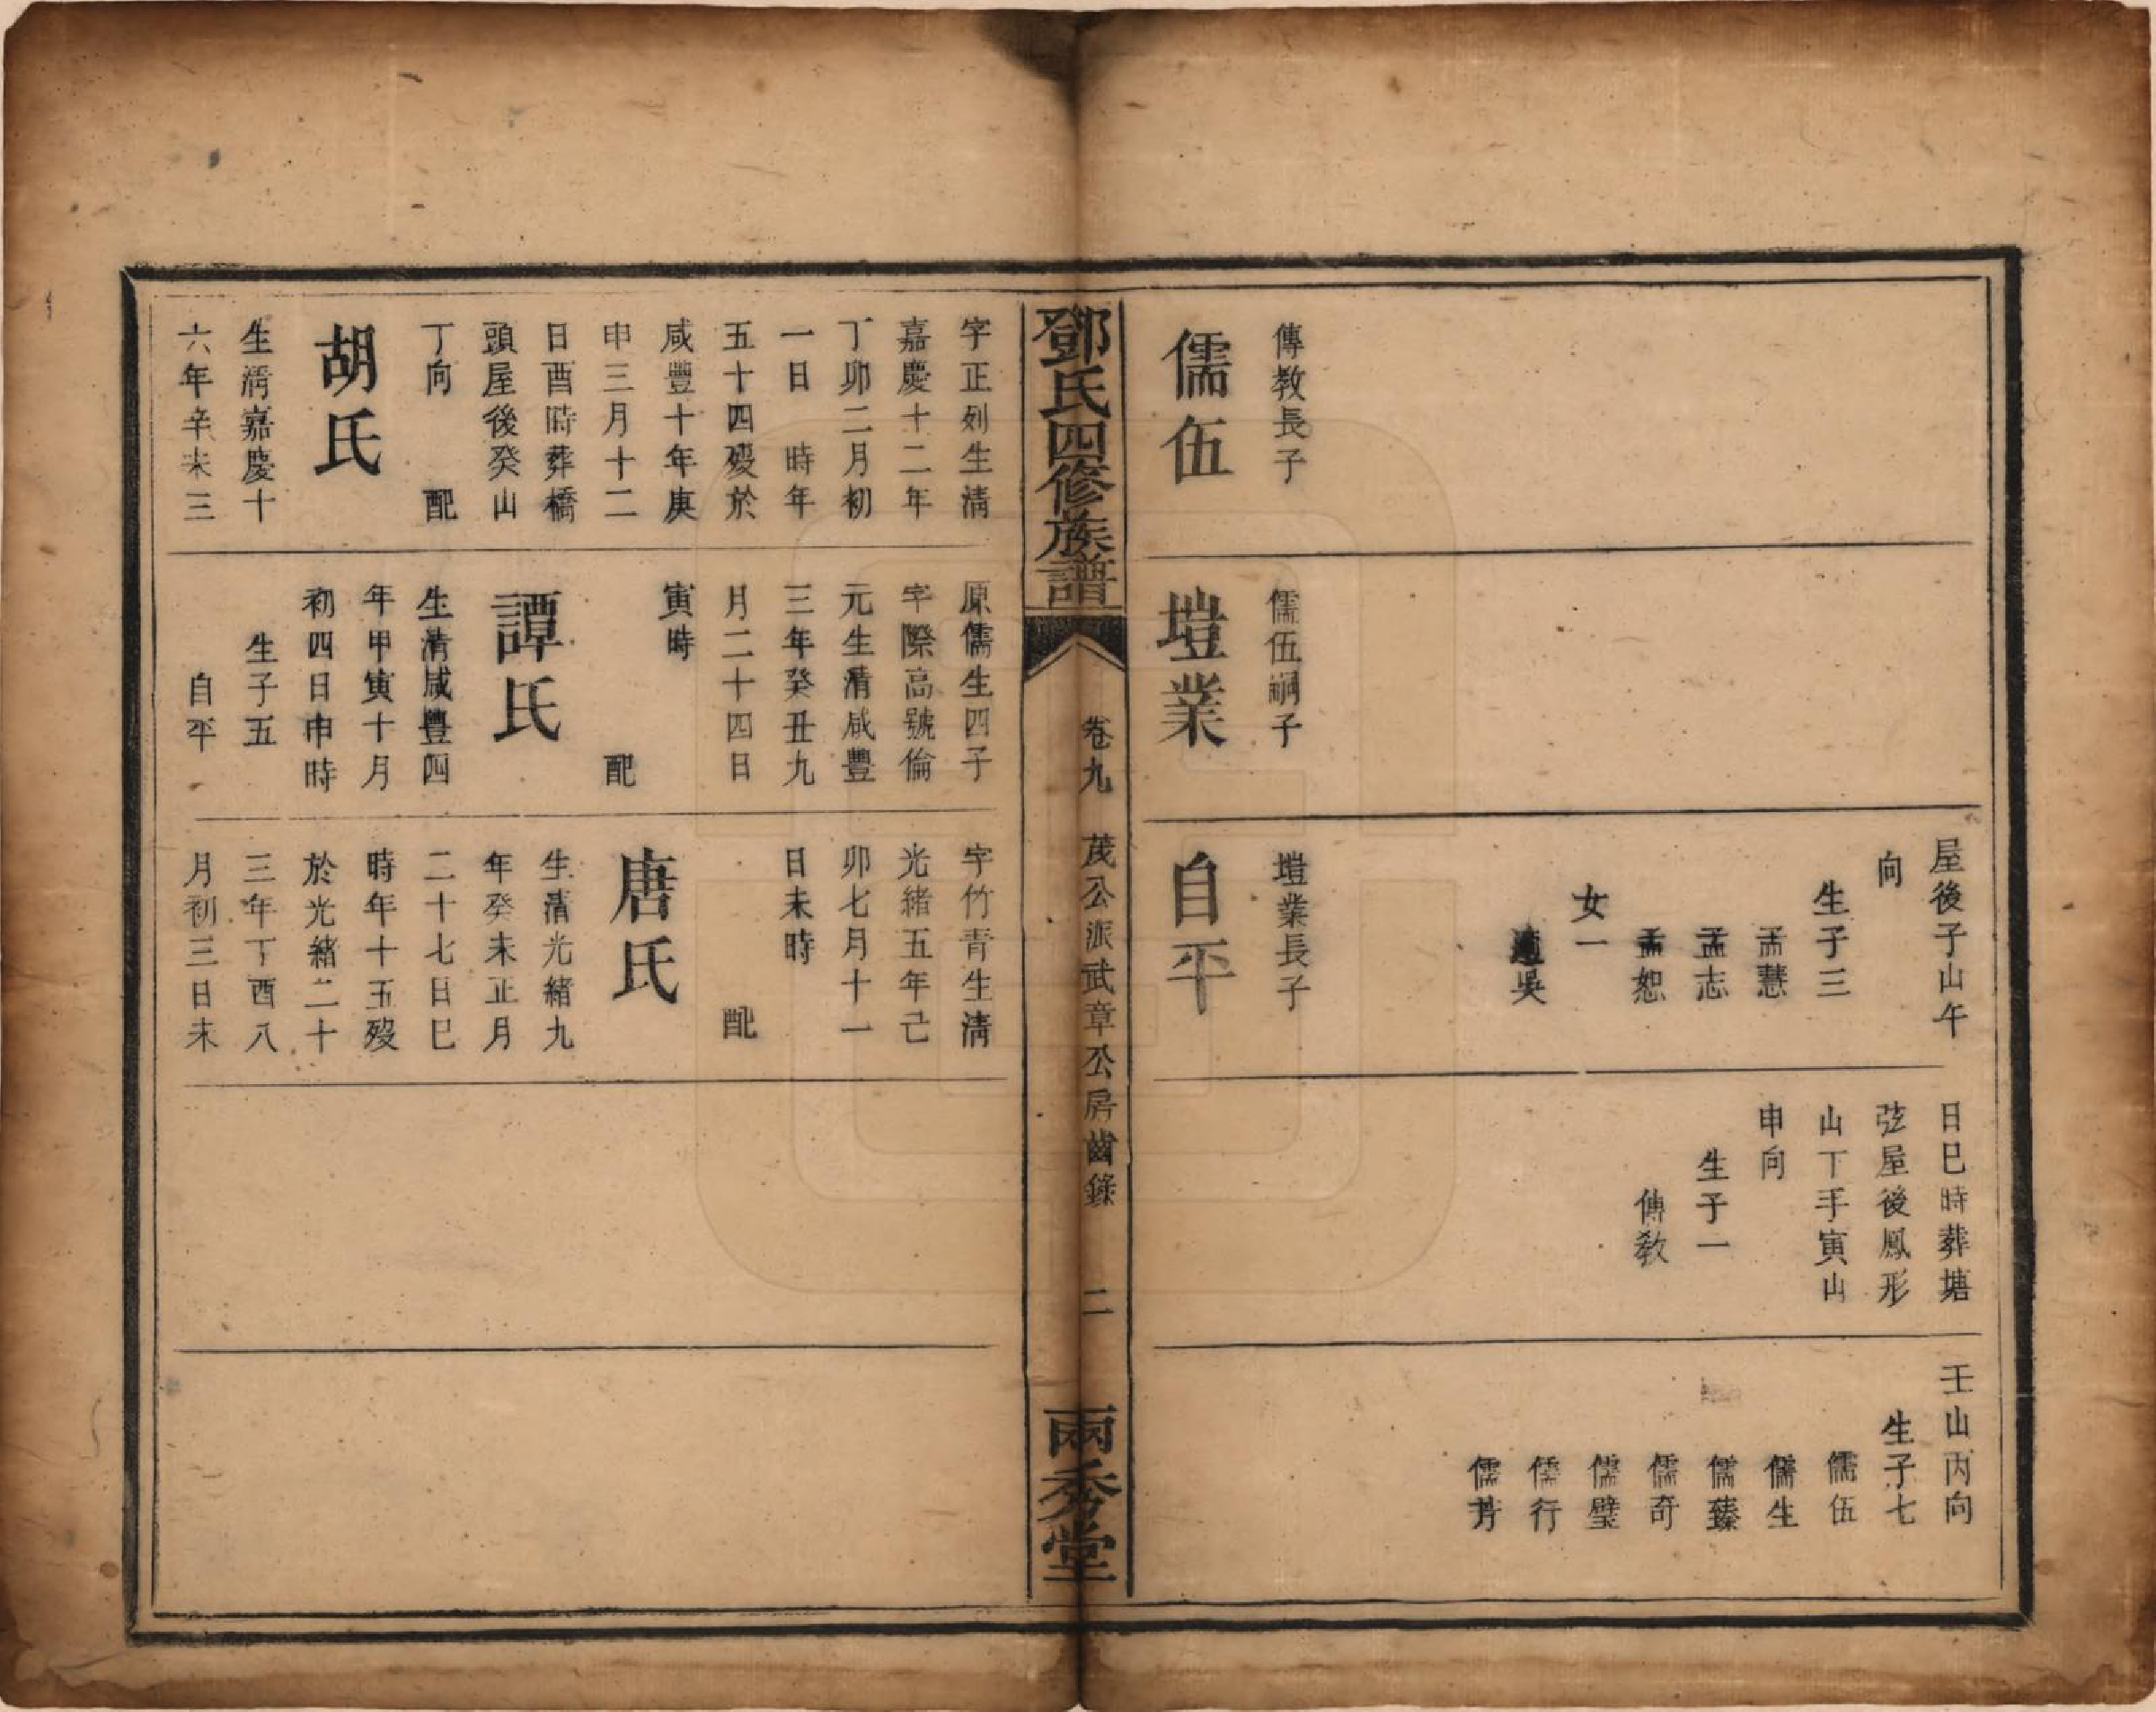 屋後子山午
向
生子三
孟慧
孟志
孟恕
女一
適吳
日巳時葬塘
弦屋後鳳形
山丁手寅山
申向
生子一
傳教
壬山丙向
生子七
儒伍
儒生
儒臻
儒奇
儒璧
儒行
儒芳
傳教長子
儒伍
儒伍嗣子
塏業
塏業長子
自平
鄧氏四修族譜
卷九 茂公派武章公房齒錄 二
兩秀堂
字正列生清
嘉慶十二年
丁卯二月初
一日 時年
五十四歿於
咸豐十年庚
申三月十二
日酉時葬橋
頭屋後癸山
丁向 配
胡氏
生清嘉慶十
六年辛未三
原儒生四子
字際高號倫
元生清咸豐
三年癸丑九
月二十四日
寅時
配
譚氏
生清咸豐四
年甲寅十月
初四日申時
生子五
自平
字竹青生清
光緒五年己
卯七月十一
日未時
配
唐氏
生清光緒九
年癸未正月
二十七日巳
時年十五歿
於光緒二十
三年丁酉八
月初三日未